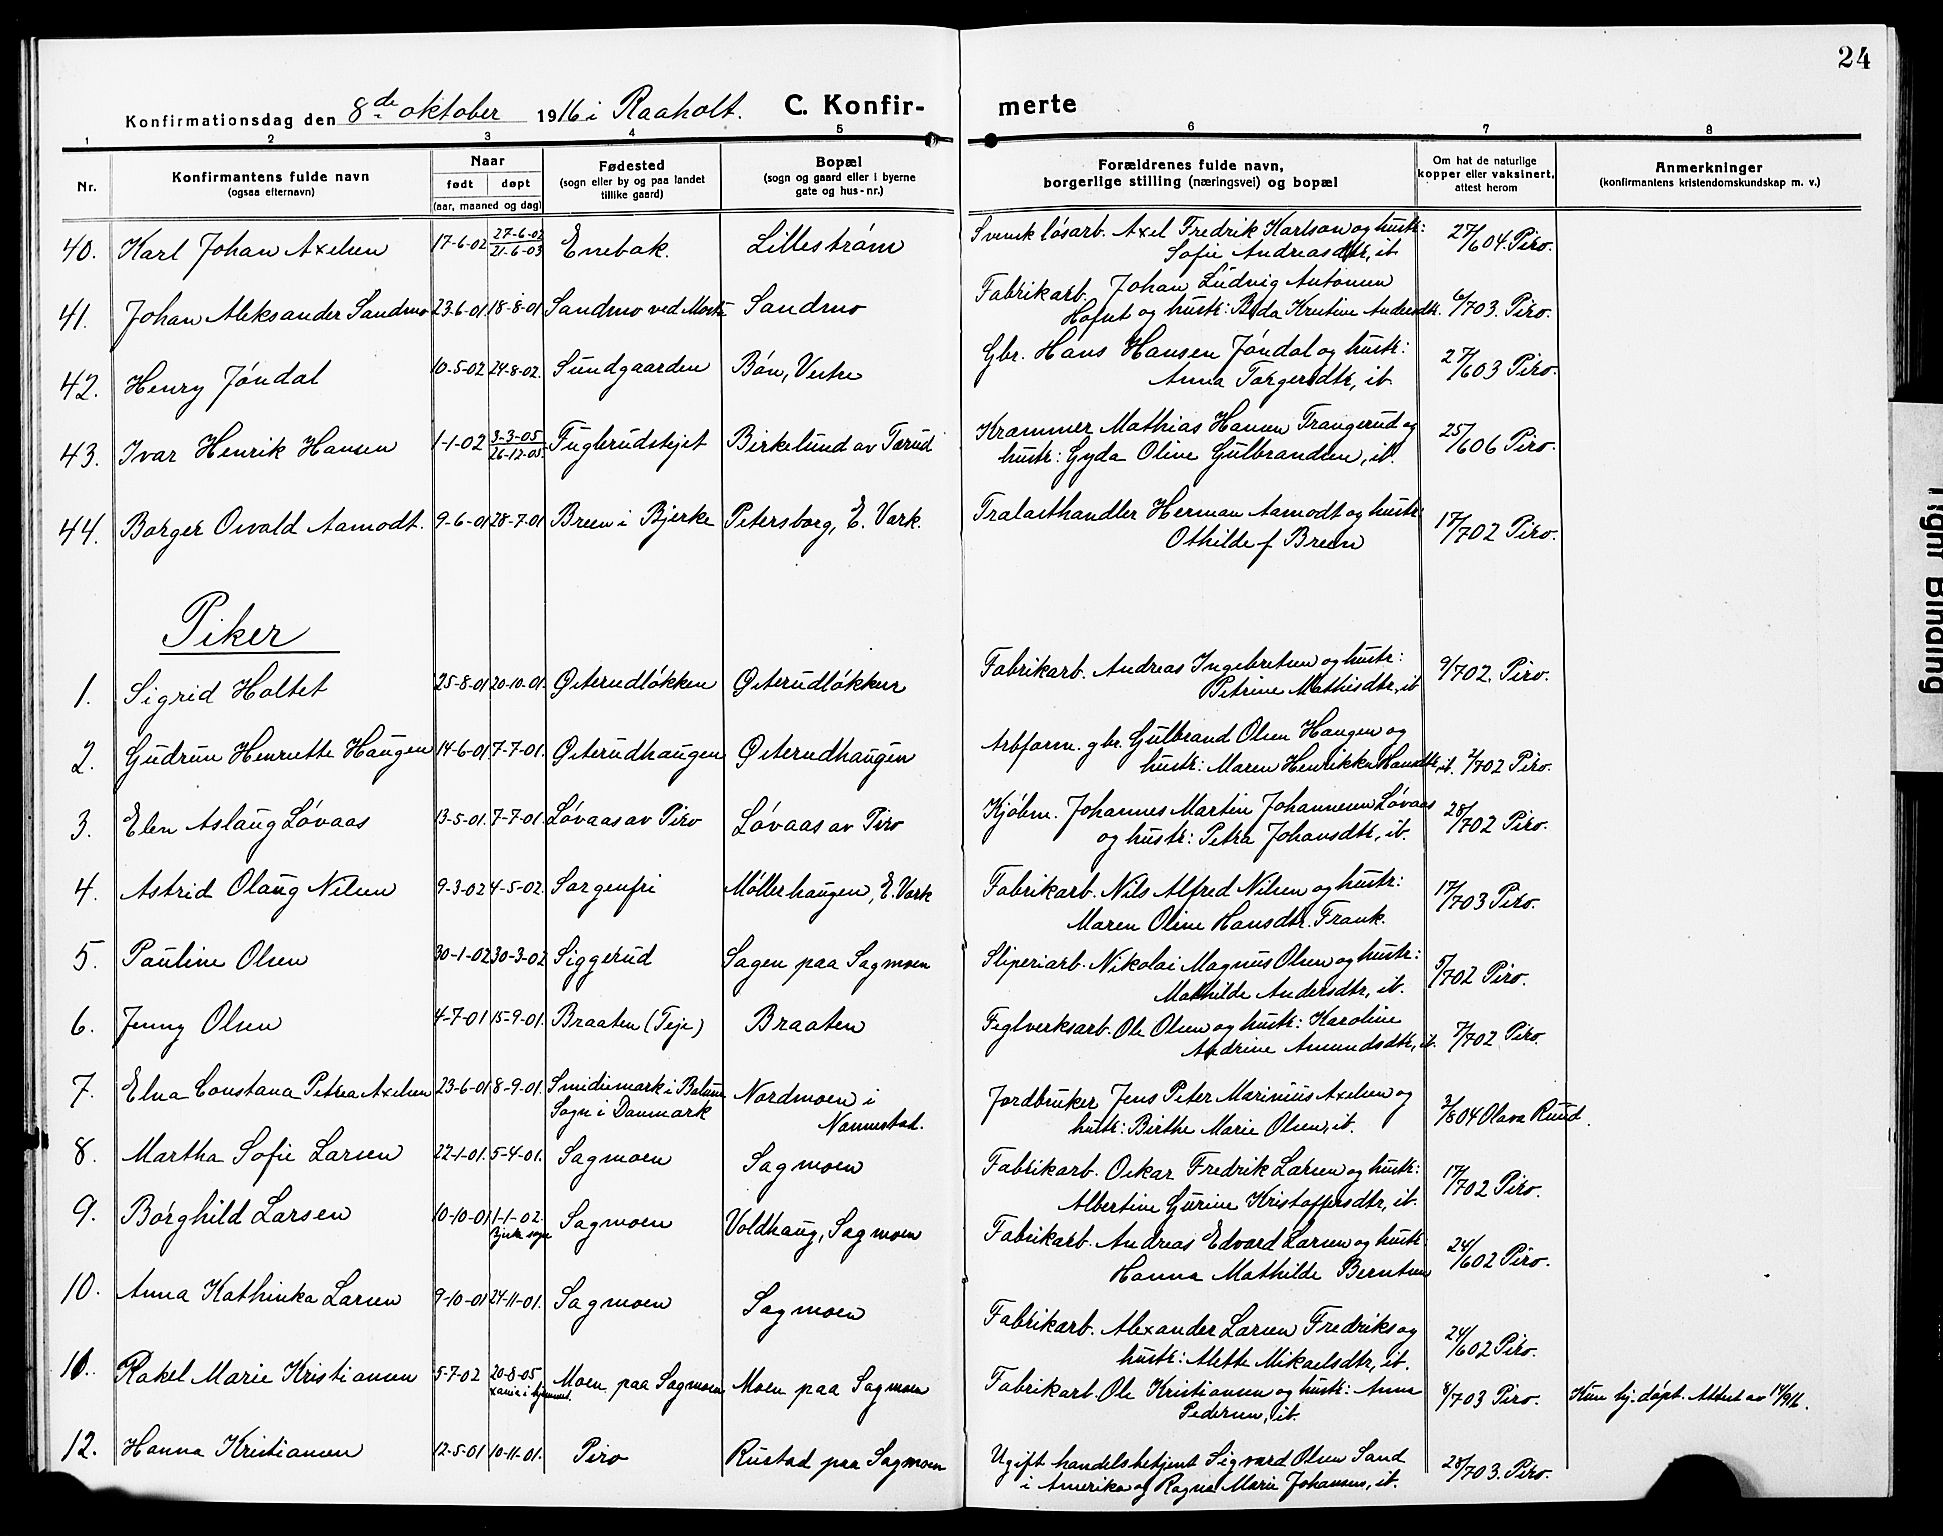 24
Konfirmationsdag den 8de oktober 1916 i Raaholt. C. Konfir- merte
1 2 3 4 5 6 7 8
Nr.
Konfirmantens fulde navn
(ogsaa efternavn)
Naar
født døpt
(aar, maaned og dag)
Fødested
(sogn eller by og paa landet
tillike gaard)
Bopæl
(sogn og gaard eller i byerne
gate og hus-nr.)
Forældrenes fulde navn,
borgerlige stilling (næringsvei) og bopæl
Om hat de naturlige
kopper eller vaksinert,
attest herom
Anmerkninger
(konfirmantens kristendomskundskap m. v.)
40. Karl Johan Axelsen 17-6-02 27-6-02 Enebak. Lillestrøm Svensk løsarb. Axel Fredrik Karlson og hustr: 27/604. Piro.
21-6-03 Sofie Andreasdtr, ib.
41. Johan Aleksander Sandmo 23-6-01 18-8-01 Sandmo ved Sandmo Fabrikarb. Johan Ludvig Antonsen 6/703. Piro.
og hustr: Kristine Andersdtr.
42. Henry Jøndal 10-5-02 24-8-02. Sundgaarden Bøn, Vestre Gbr. Hans Hansen Jøndal og hustr: 27/603 Piro.
Anna Torgersdtr, ib.
43. Ivar Henrik Hansen 1-1-02 3-3-05 Fuglerudstejet Birkelund av Tærud Kræmmer Mathias Hansen Trangerud og 25/606 Piro.
26-12-05. hustr: Gyda Oline Gulbrandsen, ib.
44. Borger Osvald Aamodt. 9-6-01 28-7-01 Breen i Bjerke Petersborg, E. Værk. Trælasthandler Herman Aamodt og hustr 17/702 Piro.
Othilde f Breen
Piker
1. Sigrid Holtet 25-8-01 20-10-01. Østerudløkken Østerudløkken Fabrikarb. Andreas Ingebretsen og hustr: 9/702. Piro.
Petrine Mathisdtr, ib
2. Gudrun Henriette Haugen 14-6-01 7-7-01. Østerudhaugen Østerudhaugen Arbform. gbr. Gulbrand Olsen Haugen og
hustr: Maren Henrikke Hansdtr, ib. 2/702 Piro.
3. Elen Aslaug Løvaas 13-5-01. 7-7-01. Løvaas av Piro Løvaas av Piro Kjøbm. Johannes Martin Johannesen Løvaas 28/702 Piro.
og hustr: Petra Johansdtr, ib.
4. Astrid Olaug Nilsen 9-3-02 4-5-02. Sorgenfri Møllerhaugen, E. Værk Fabrikarb. Nils Alfred Nilsen og hustr: 17/703 Piro.
Maren Oline Hansdtr. Frank.
5. Pauline Olsen 30-1-02 30-3-02 Siggerud Sagen paa Sagmoen Sliperiarb. Nikolai Magnus Olsen og hustr: 5/702 Piro.
Mathilde Andersdtr, ib.
6. Jenny Olsen 4-7-01 15-9-01. Braaten (Teje) Braaten Teglverksarb. Ole Olsen og hustr: Karoline 7/702 Piro.
Andrine Amundsdtr, ib.
7. Elna Constana Petrea Axelsen 23-6-01 8-9-01. Smidiemark i Nordmoen i Jordbruker Jens Peter Marinius Axelsen og 3/804 Olava Ruud.
Sogn i Danmark Nannestad. hustr: Birthe Marie Olsen, ib.
8. Martha Sofie Larsen 22-1-01. 5-4-01. Sagmoen Sagmoen Fabrikarb. Oskar Fredrik Larsen og hustr: 17/702 Piro.
Albertine Gurine Kristoffersdtr, ib.
9. Borghild Larsen 10-10-01 1-1-02. Sagmoen Voldhaug, Sagmoen Fabrikarb. Andreas Edvard Larsen og hustr: 24/602 Piro.
Bjerke sogn Hanna Mathilde Berntsen
10. Anna Kathinka Larsen 9-10-01 24-11-01. Sagmoen Sagmoen Fabrikarb. Alexander Larsen Fredriks og 24/602 Piro.
hustr: Alette Mikaelsdtr, ib.
11. Rakel Marie Kristiansen 5-7-02 20-8-05 Moen paa Sagmoen Moen paa Sagmoen Fabrikarb. Ole Kristiansen og hustr: Anna 8/703 Piro. Kun hj. døpt. Attest av 14/916.
i hjemmet. Pedersen, ib.
12. Hanna Kristiansen 12-5-01 10-11-01. Piro Rustad paa Sagmoen Ugift handelsbetjent Sigvard Olsen Sand 28/703. Piro.
i Amerika og Ragna Marie Johansen, ib.
Binding